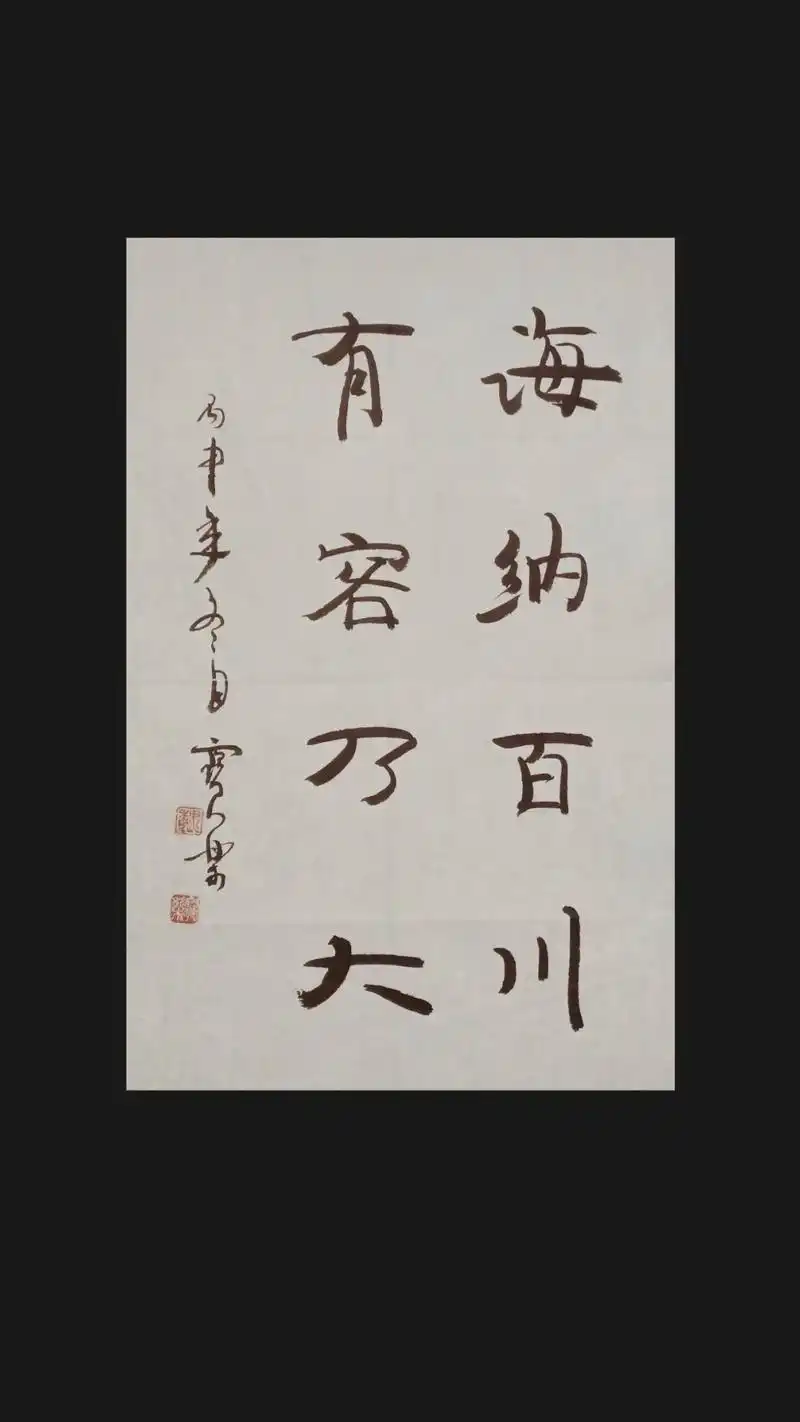 海纳百川
有容乃大
丙申年冬月